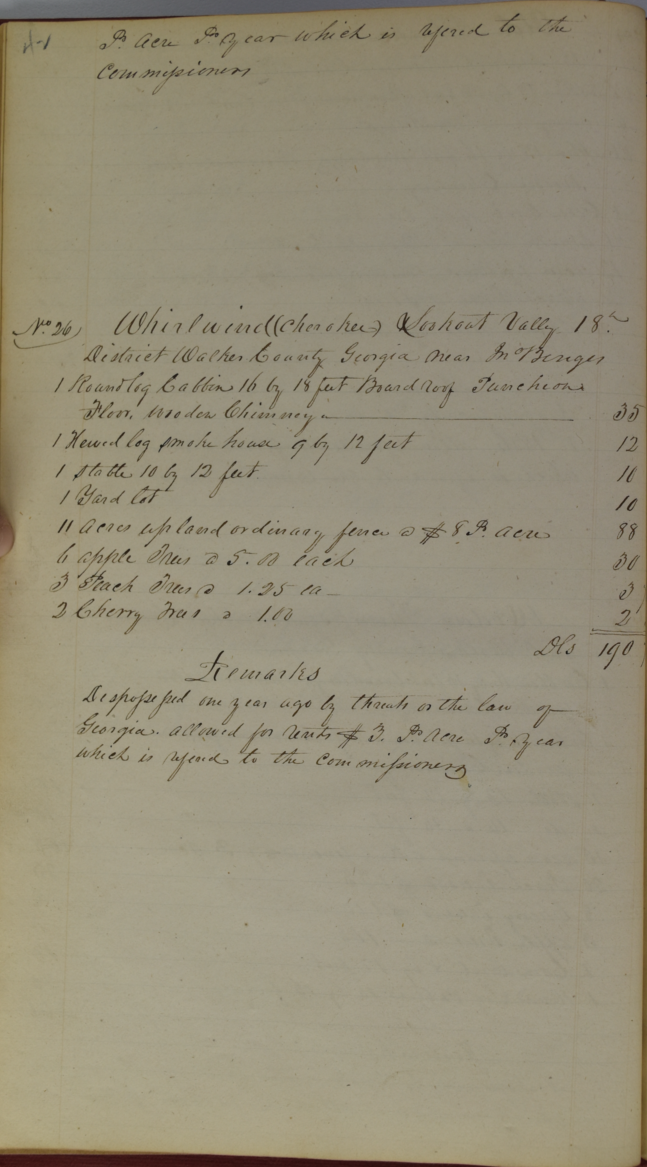 Pr. Acre Pr. year which is refered to the
Commissioners
No. 26 Whirlwind (Cherokee) Lookout Valley 18th
District Walker County Georgia near Jno Benges
1 Round log Cabbin 16 by 18 feet Board roof Puncheon
Floor, wooden Chimney 35
1 Hewed log smoke house 9 by 12 feet 12
1 stable 10 by 12 feet 10
1 Yard lot 10
11 acres upland ordinary fence @ $8 Pr. acre 88
6 apple Trees @ 5.00 each 30
3 Peach Trees @ 1.25 ea 3
2 Cherry Trees @ 1.00 2
Dls 190
Remarks
Dispossessed one year ago by threats or the law of
Georgia. allowed for rents $3. Pr. Acre Pr. year
which is refered to the commissioners